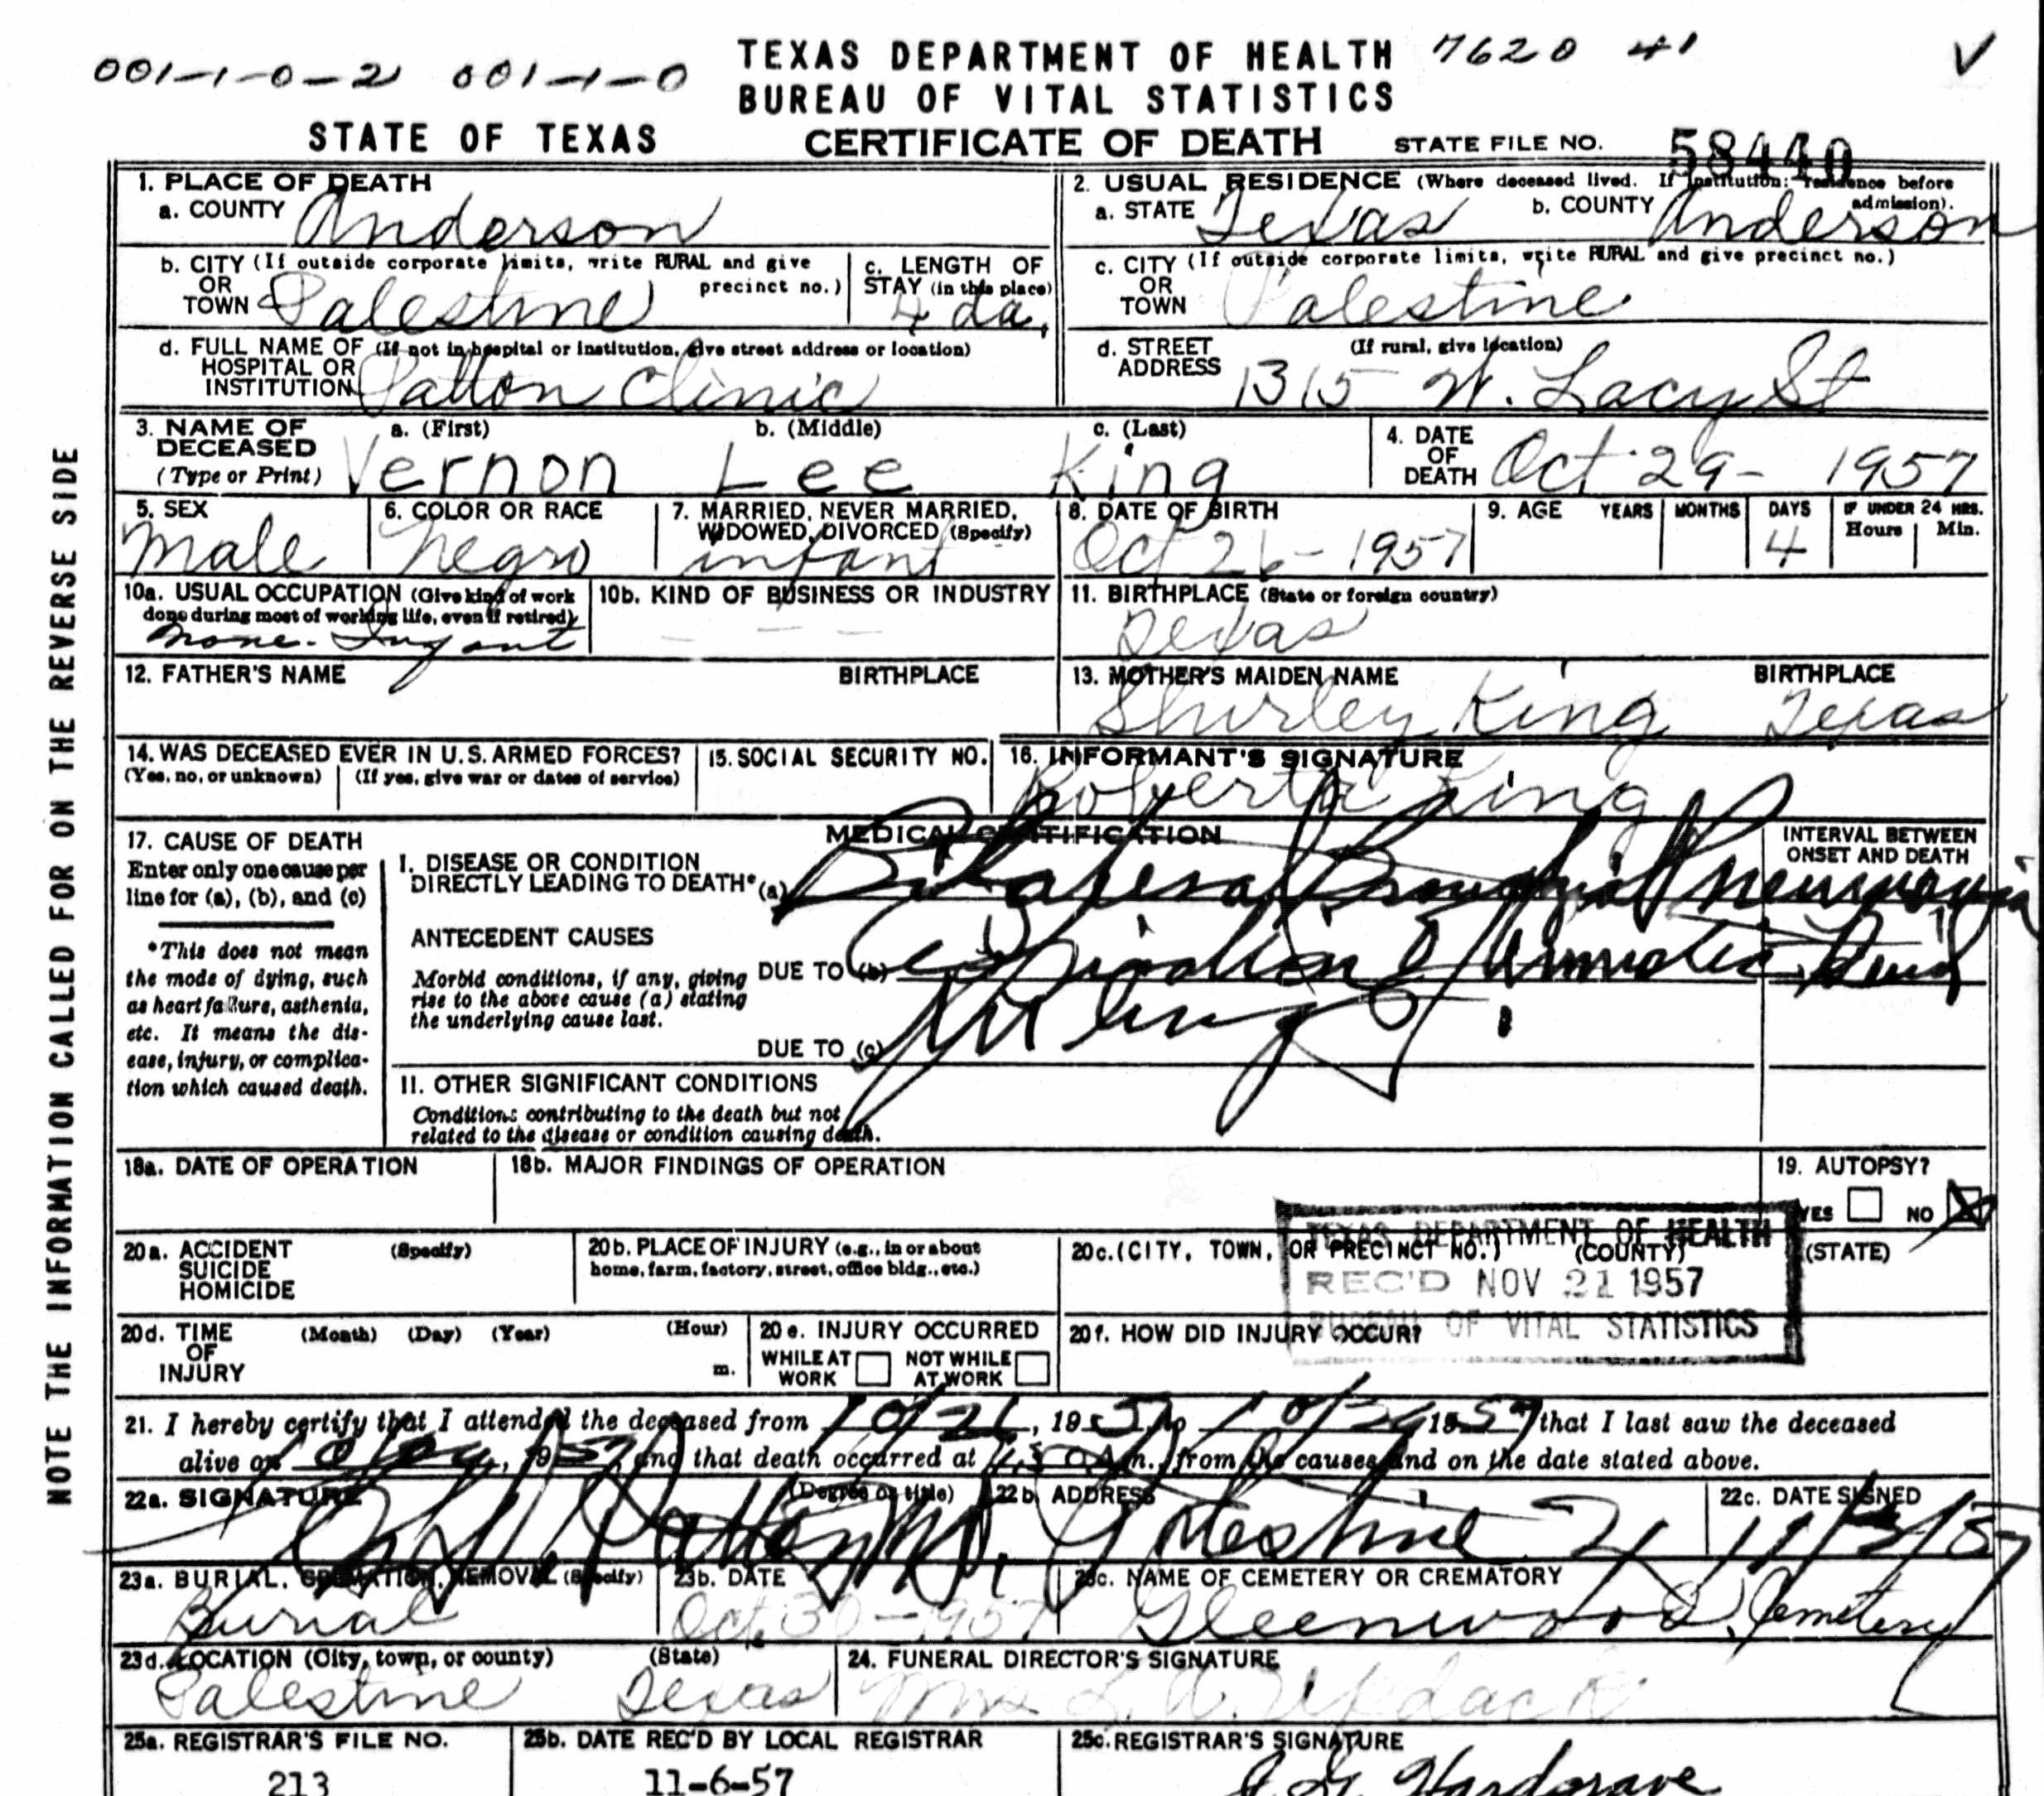 001-1-0-2 001-1-0 TEXAS DEPARTMENT OF HEALTH 7620 41 V
BUREAU OF VITAL STATISTICS
STATE OF TEXAS CERTIFICATE OF DEATH STATE FILE NO. 58440
1. PLACE OF DEATH
a. COUNTY Anderson
2. USUAL RESIDENCE (Where deceased lived. If institution: residence before admission).
a. STATE Texas b. COUNTY Anderson
b. CITY (If outside corporate limits, write RURAL and give
OR precinct no.)
TOWN Palestine
c. LENGTH OF
STAY (in this place)
4 da.
c. CITY (If outside corporate limits, write RURAL and give precinct no.)
OR
TOWN Palestine
d. FULL NAME OF (If not in hospital or institution, give street address or location)
HOSPITAL OR
INSTITUTION Patton Clinic
d. STREET (If rural, give location)
ADDRESS 1315 W. Lacy St
3. NAME OF a. (First) b. (Middle) c. (Last)
DECEASED
(Type or Print) Vernon Lee King
4. DATE
OF
DEATH Oct 29- 1957
5. SEX
Male
6. COLOR OR RACE
Negro
7. MARRIED, NEVER MARRIED,
WIDOWED, DIVORCED (Specify)
infant
8. DATE OF BIRTH
Oct 26- 1957
9. AGE YEARS MONTHS DAYS IF UNDER 24 HRS.
Hours Min.
4
10a. USUAL OCCUPATION (Give kind of work
done during most of working life, even if retired)
none- Infant
10b. KIND OF BUSINESS OR INDUSTRY
- - -
11. BIRTHPLACE (State or foreign country)
Texas
12. FATHER'S NAME BIRTHPLACE
13. MOTHER'S MAIDEN NAME BIRTHPLACE
Shirley King Texas
14. WAS DECEASED EVER IN U.S. ARMED FORCES?
(Yes, no, or unknown) (If yes, give war or dates of service)
15. SOCIAL SECURITY NO.
16. INFORMANT'S SIGNATURE
Roberta King
17. CAUSE OF DEATH
Enter only one cause per
line for (a), (b), and (c)
*This does not mean
the mode of dying, such
as heart failure, asthenia,
etc. It means the dis-
ease, injury, or complica-
tion which caused death.
MEDICAL CERTIFICATION
I. DISEASE OR CONDITION
DIRECTLY LEADING TO DEATH* (a) Bilateral Bronchial Pneumonia
INTERVAL BETWEEN
ONSET AND DEATH
ANTECEDENT CAUSES
Morbid conditions, if any, giving
rise to the above cause (a) stating
the underlying cause last.
DUE TO (b) Aspiration Amniotic fluid
DUE TO (c)
II. OTHER SIGNIFICANT CONDITIONS
Conditions contributing to the death but not
related to the disease or condition causing death.
18a. DATE OF OPERATION
18b. MAJOR FINDINGS OF OPERATION
19. AUTOPSY?
YES NO
20a. ACCIDENT (Specify)
SUICIDE
HOMICIDE
20b. PLACE OF INJURY (e.g., in or about
home, farm, factory, street, office bldg., etc.)
20c. (CITY, TOWN, OR PRECINCT NO.) (COUNTY) (STATE)
TEXAS DEPARTMENT OF HEALTH
REC'D NOV 21 1957
BUREAU OF VITAL STATISTICS
20d. TIME (Month) (Day) (Year) (Hour)
OF
INJURY m.
20e. INJURY OCCURRED
WHILE AT WORK NOT WHILE AT WORK
20f. HOW DID INJURY OCCUR?
21. I hereby certify that I attended the deceased from 10/26, 1957 to 10/29 1957 that I last saw the deceased
alive on 10/29, 1957, and that death occurred at m., from the causes and on the date stated above.
22a. SIGNATURE (Degree or title)
Patton MD.
22b. ADDRESS
Palestine
22c. DATE SIGNED
23a. BURIAL, CREMATION, REMOVAL (Specify)
Burial
23b. DATE
Oct. 30-1957
23c. NAME OF CEMETERY OR CREMATORY
Gleenwood Cemetery
23d. LOCATION (City, town, or county) (State)
Palestine Texas
24. FUNERAL DIRECTOR'S SIGNATURE
25a. REGISTRAR'S FILE NO.
213
25b. DATE REC'D BY LOCAL REGISTRAR
11-6-57
25c. REGISTRAR'S SIGNATURE
Hardgrave
NOTE THE INFORMATION CALLED FOR ON THE REVERSE SIDE